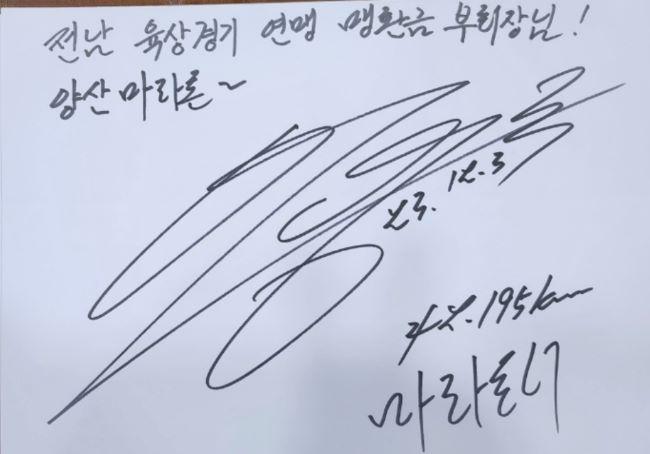 전남 육상경기 연맹 맹환금 부회장님!
양산 마라톤~
23. 12. 3
42.195km
마라토너